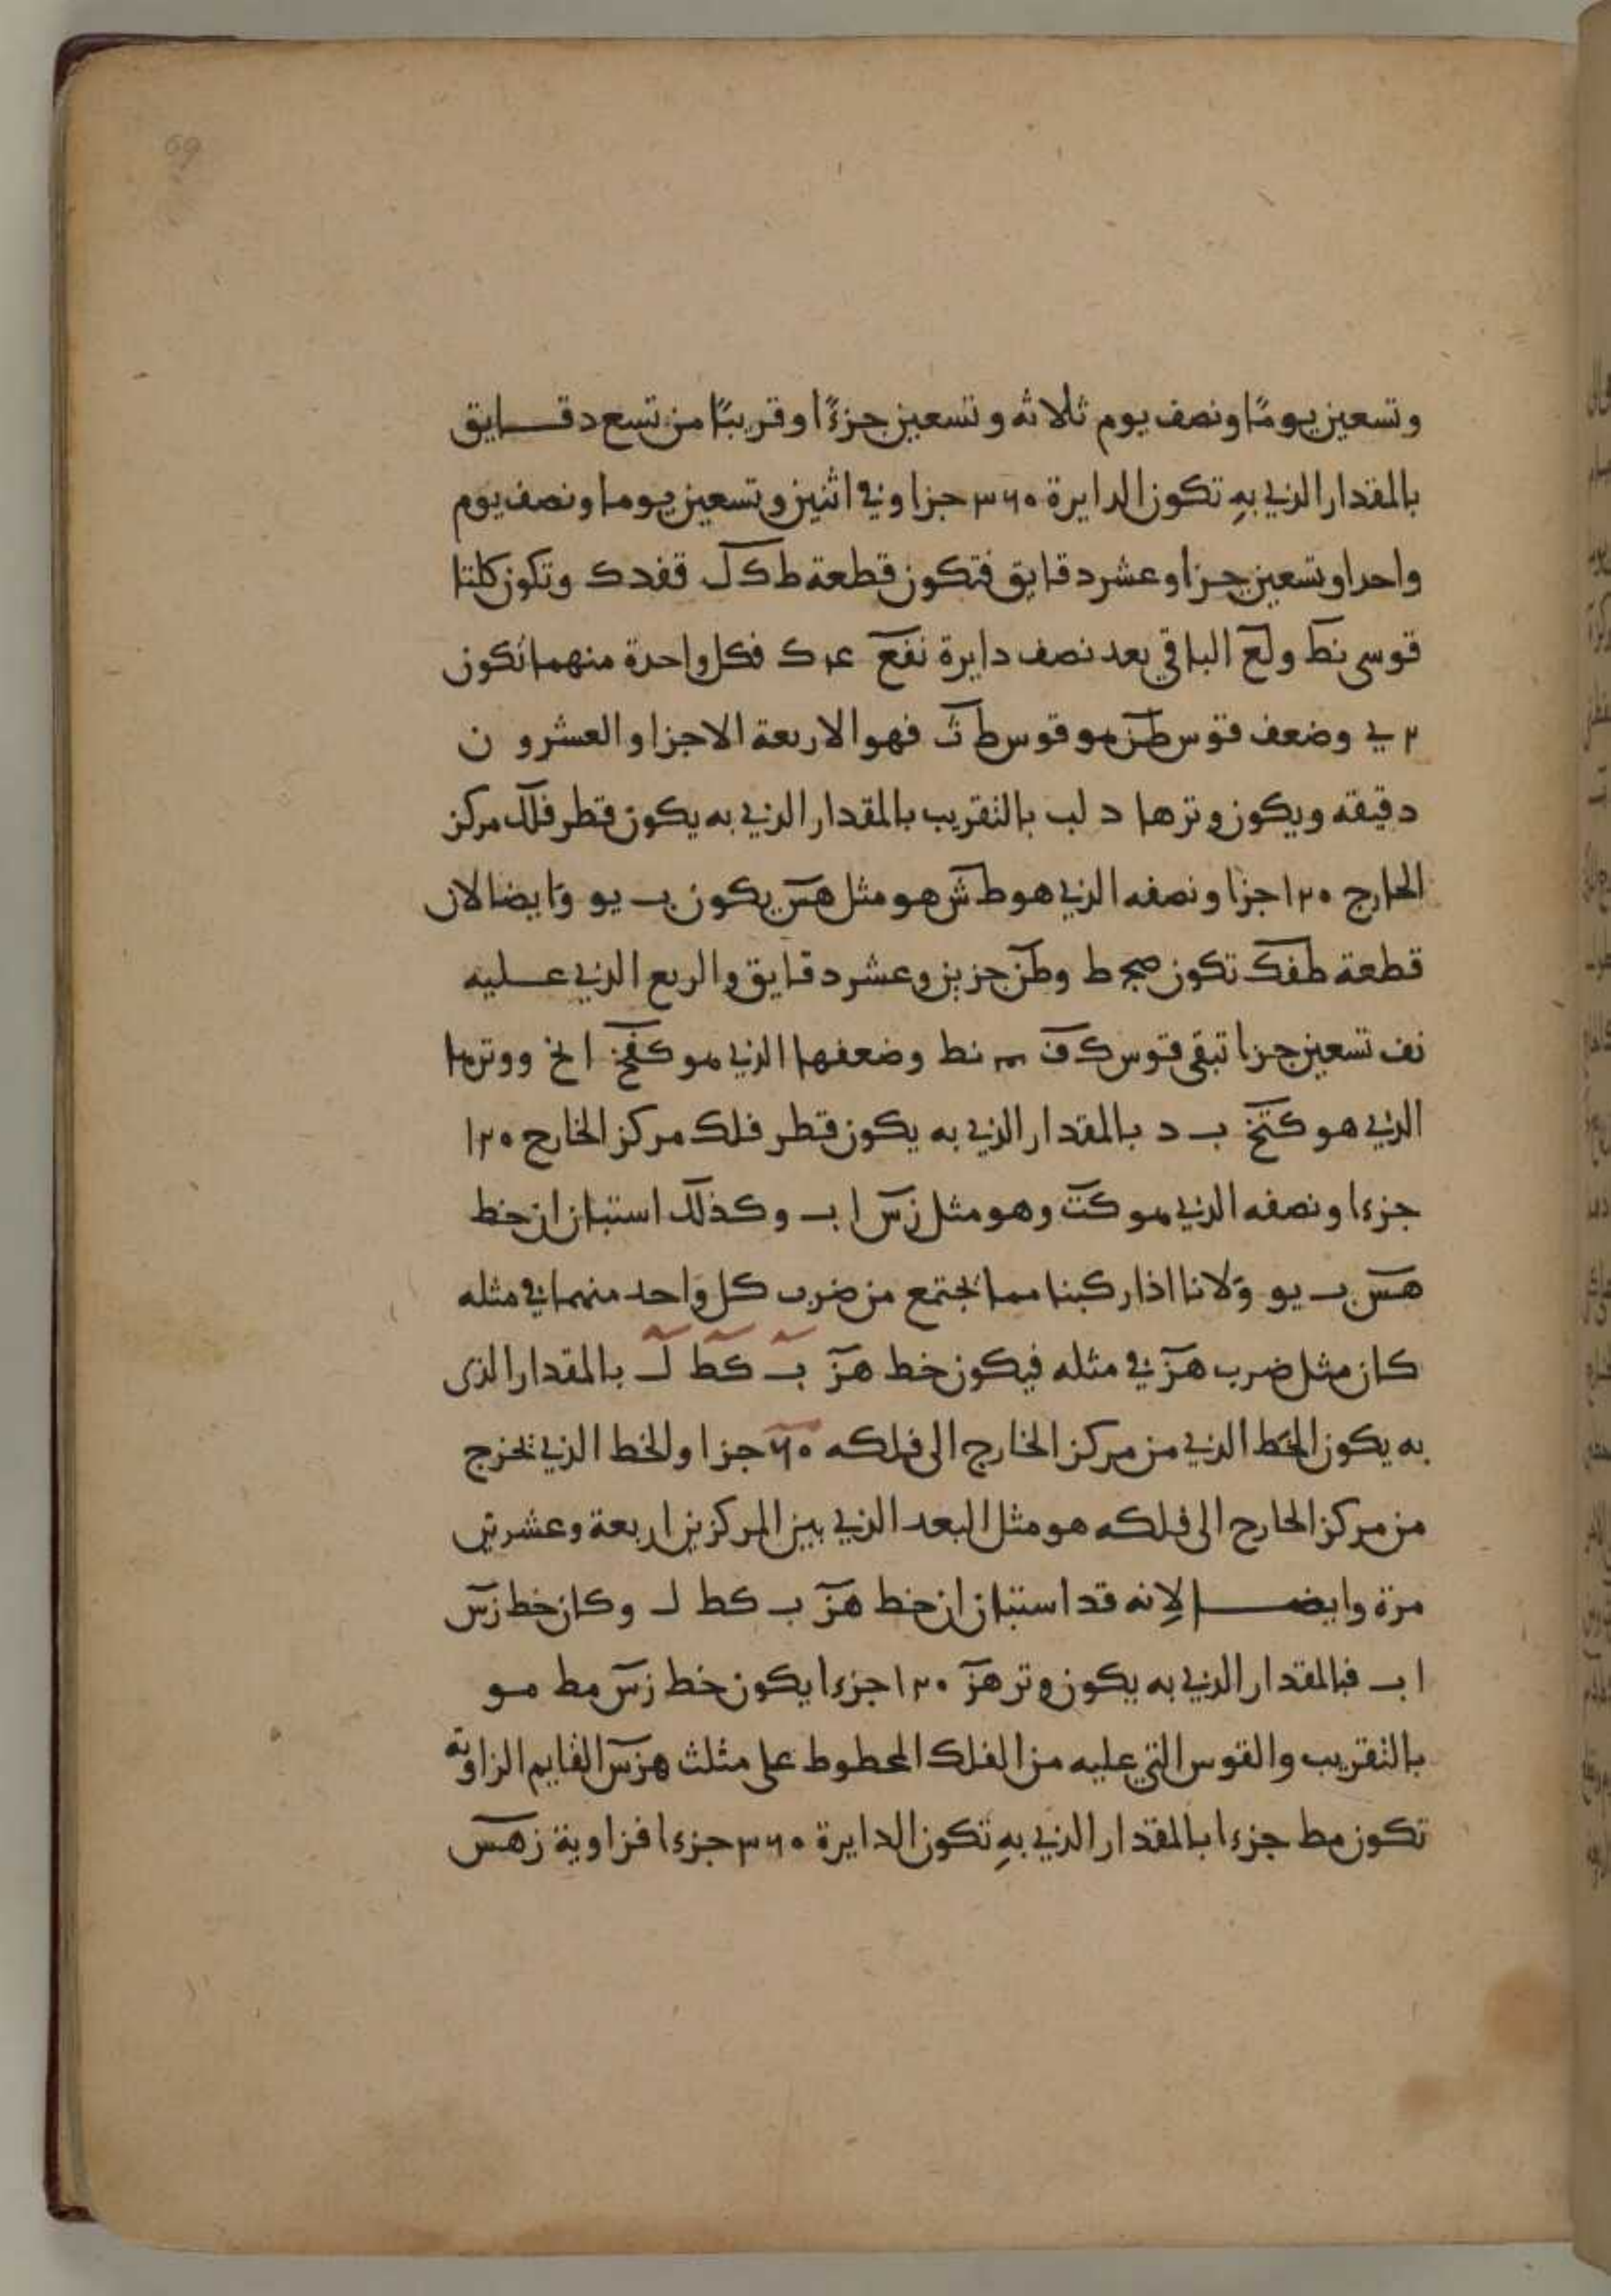 69
وتسعين يومًا ونصف يوم ثلاثه وتسعين جزءًا وقريبًا من تسع دقايق
بالمقدار الذي بهِ تكون الدايرة ٣٦٠ جزا وفي اثنين وتسعين يوما ونصف يوم
واحدا وتسعين جزا وعشر دقايق فتكون قطعة طكل قفدك وتكون كلتا
قوسى نط ولع الباقي بعد نصف دايرة نفع ك فكل واحدة منهما تكون
ي وضعف قوس طن هو قوس طث فهو الاربعة الاجزا والعشرون
دقيقه ويكون وترها د لب بالتقريب بالمقدار الذي به يكون قطر فلك مركز
الحارج ١٢٠ جزا ونصفه الذي هو طش هو مثل هس يكون ب يو وَايضا لان
قطعة طفك تكون صج ط وطن جزين وعشر دقايق والربع الذي عليه
نف تسعين جزا تبقى قوس كف نط وضعفها الذي هو كفخ ا نخ ووترها
الذي هو كتخ ب د بالمقدار الذي به يكون قطر فلك مركز الخارج ١٢٠
جزءا ونصفه الذي هو كت وهو مثل زس ا ب وكذلك استبان ان خط
هس ب يو وَلانا اذا ركبنا مما يجتمع من ضرب كل واحد منهما في مثله
كان مثل ضرب هز في مثله فيكون خط هز ب كط ل بالمقدار الذى
به يكون الخط الذي من مركز الخارج الى فلكه ٦٠ جزا والخط الذي يخرج
من مركز الحارج الى فلكه هو مثل البعد الذي بين المركزين اربعة وعشرين
مرة وايضا لاِنه قد استبان ان خط هز ب كط ل وكان خط زس
ا ب فبالمقدار الذي به يكون وتر هز ١٢٠ جزءا يكون خط زس مط مو
بالتقريب والقوس التي عليه من الفلك المحطوط على مثلث هزس القايم الزاوية
تكون مط جزءا بالمقدار الذي بهِ تكون الدايرة ٣٦٠ جزءا فزاوية زهس